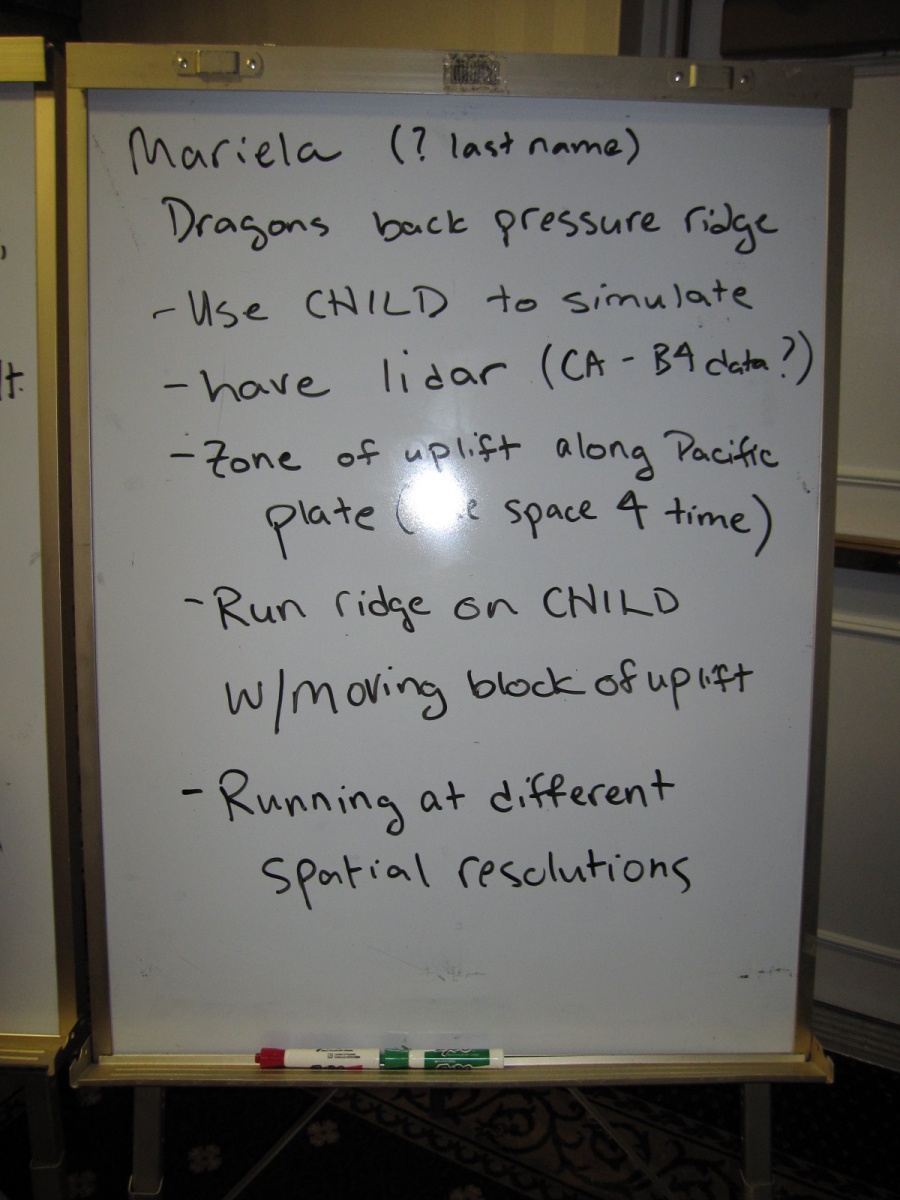 Mariela (? last name)
Dragons back pressure ridge
- Use CHILD to simulate
- have lidar (CA - B4 data?)
- Zone of uplift along Pacific
plate ( space 4 time)
- Run ridge on CHILD
w/moving block of uplift
- Running at different
spatial resolutions